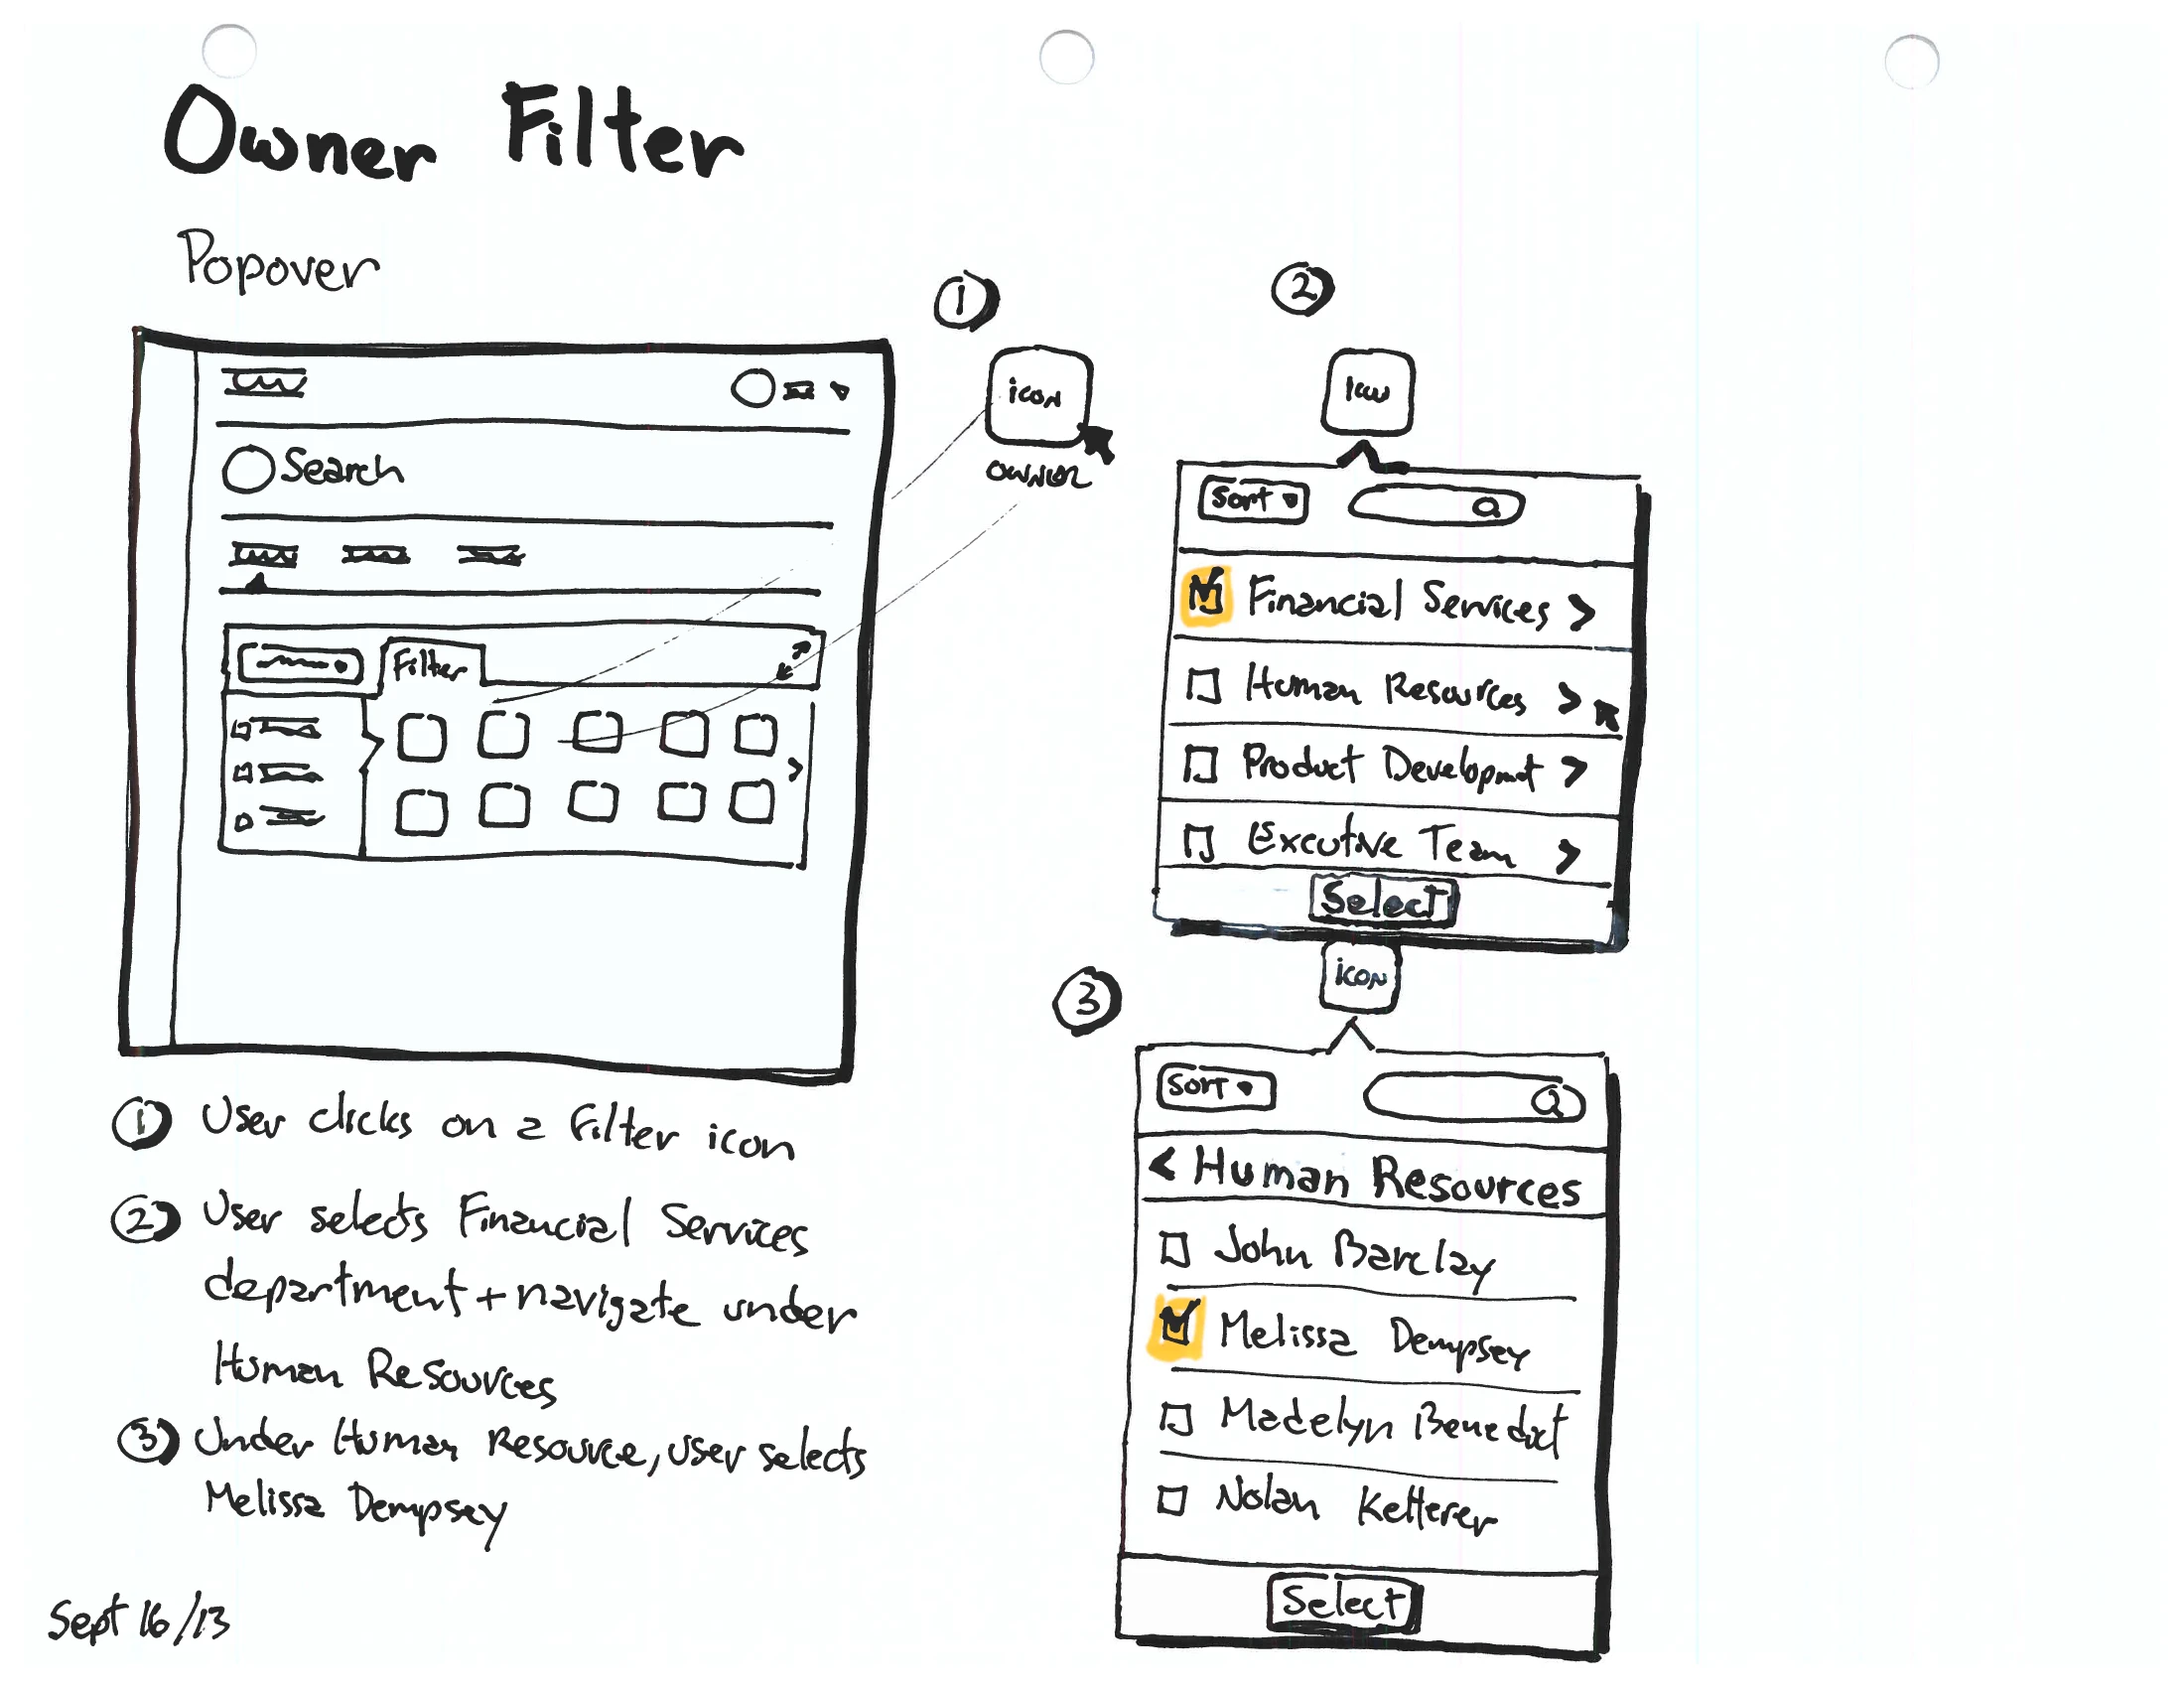 Owner Filter
Popover
1
icon
owner
2
icon
Search
Filter
Sort
Financial Services >
Human Resources >
Product Developmt >
Executive Team >
Select
3
icon
Sort
< Human Resources
John Barclay
Melissa Dempsey
Madelyn Benedict
Nolan Ketterer
Select
1 User clicks on a Filter icon
2 User selects Financial Services
department + navigate under
Human Resources
3 Under Human Resource, user selects
Melissa Dempsey
Sept 16/13